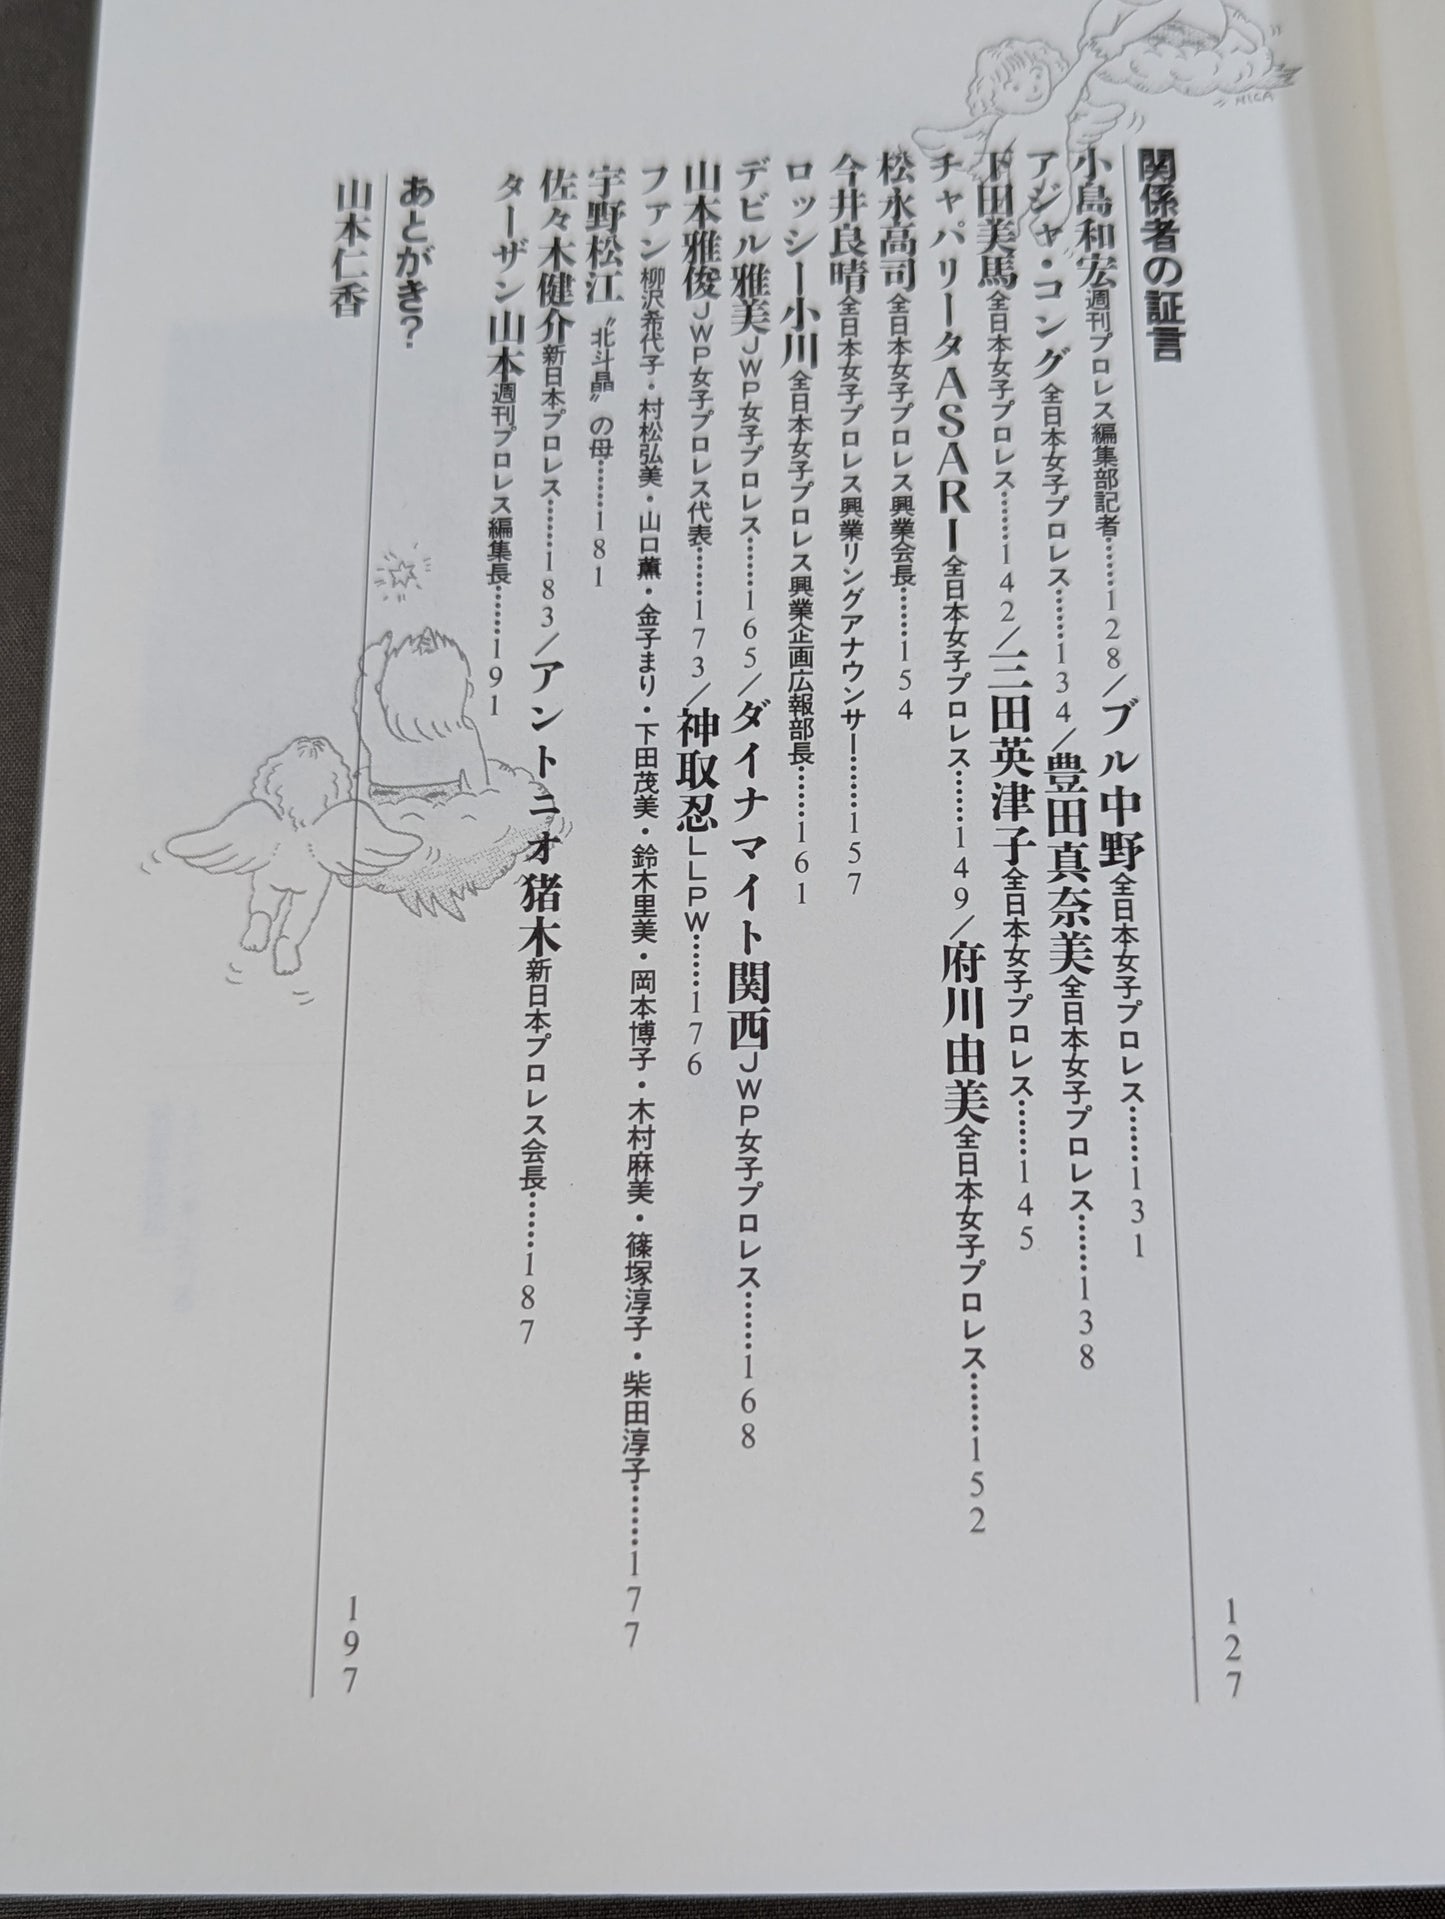 関係者の証言 127
小島和宏 週刊プロレス編集部記者……128／ブル中野 全日本女子プロレス……131
アジャ・コング 全日本女子プロレス……134／豊田真奈美 全日本女子プロレス……138
下田美馬 全日本女子プロレス……142／三田英津子 全日本女子プロレス……145
チャパリータASARI 全日本女子プロレス……149／府川由美 全日本女子プロレス……152
松永高司 全日本女子プロレス興業会長……154
今井良晴 全日本女子プロレス興業リングアナウンサー……157
ロッシー小川 全日本女子プロレス興業企画広報部長……161
デビル雅美 JWP女子プロレス……165／ダイナマイト関西 JWP女子プロレス……168
山本雅俊 JWP女子プロレス代表……173／神取忍 LLPW……176
ファン 柳沢希代子・村松弘美・山口薫・金子まり・下田茂美・鈴木里美・岡本博子・木村麻美・篠塚淳子・柴田淳子……177
宇野松江 〝北斗晶〟の母……181
佐々木健介 新日本プロレス……183／アントニオ猪木 新日本プロレス会長……187
ターザン山本 週刊プロレス編集長……191
あとがき？
山本仁香 197
MICA